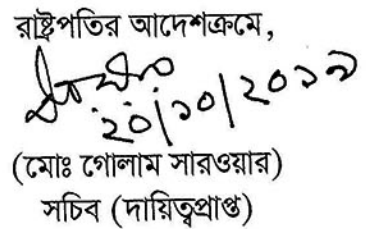 রাষ্ট্রপতির আদেশক্রমে,
২০/১০/২০১৯
(মোঃ গোলাম সারওয়ার)
সচিব (দায়িত্বপ্রাপ্ত)